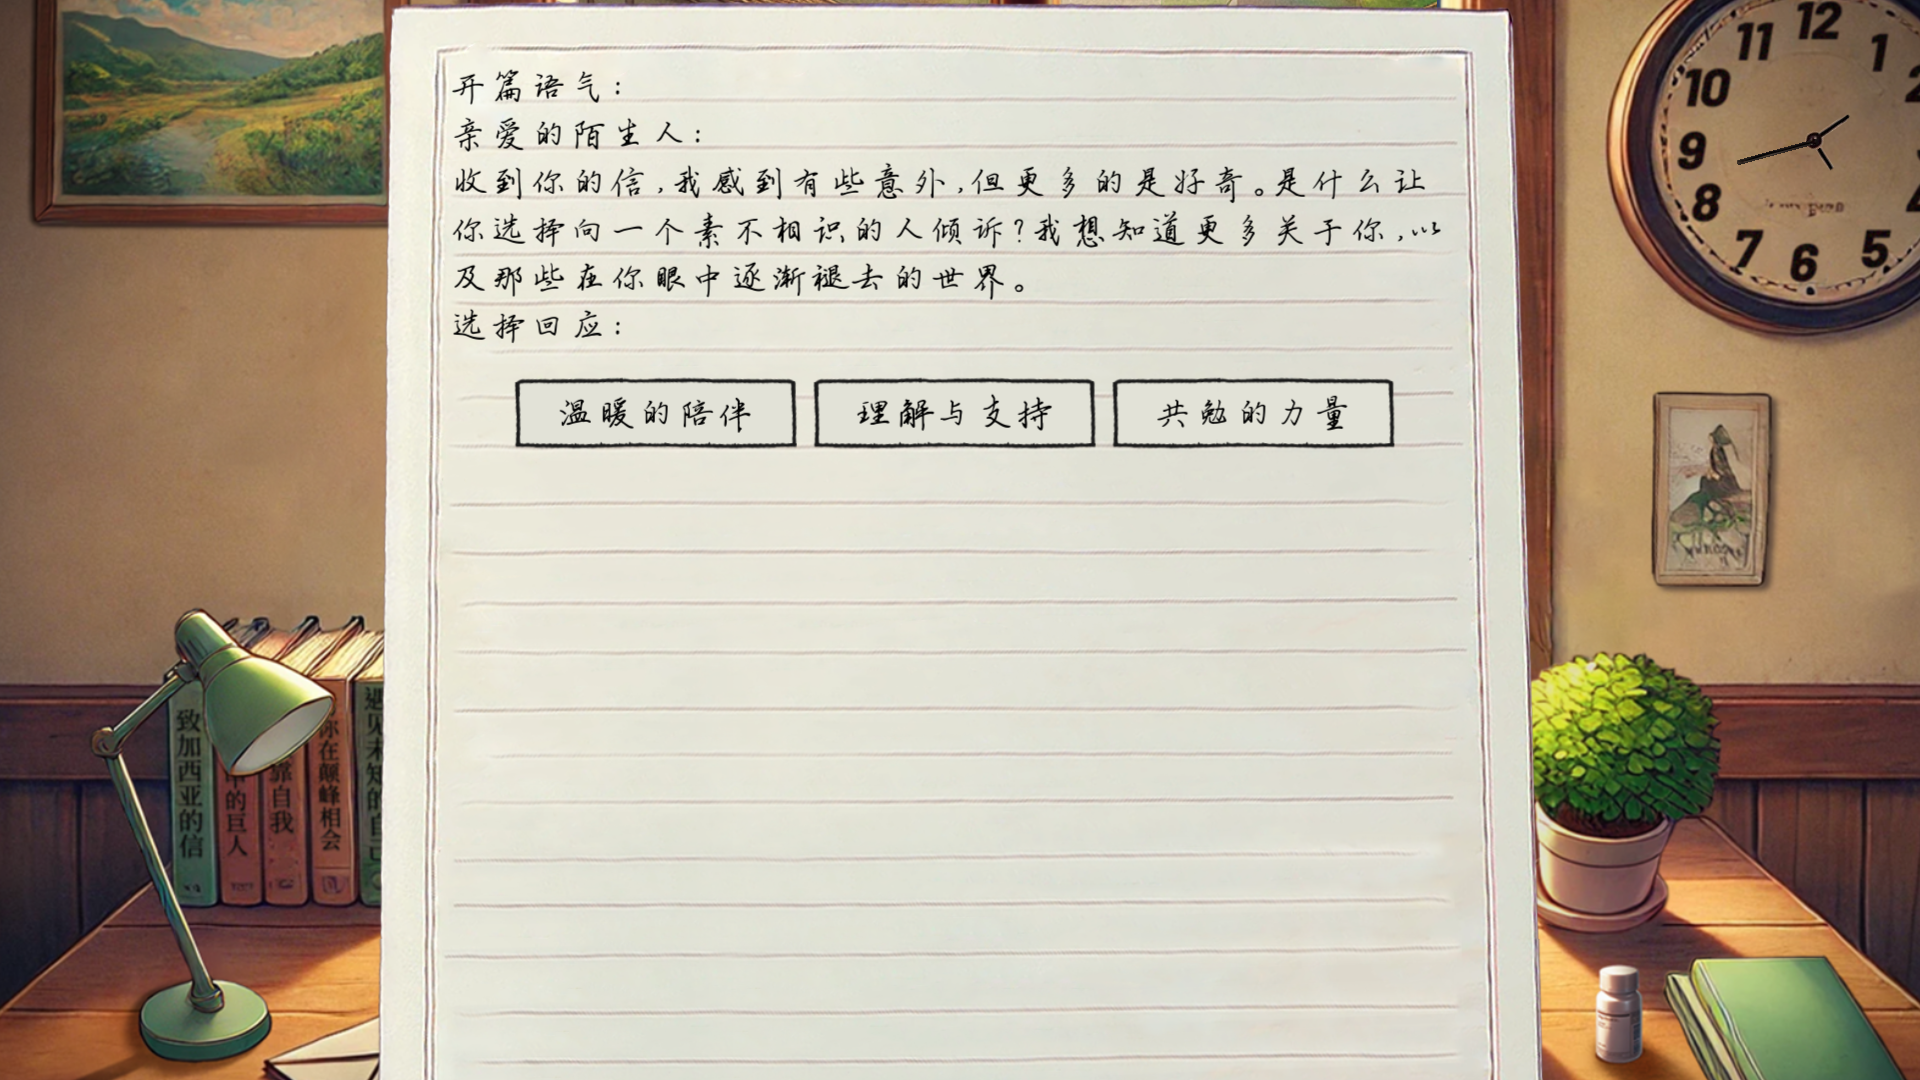 开篇语气：
亲爱的陌生人：
收到你的信，我感到有些意外，但更多的是好奇。是什么让
你选择向一个素不相识的人倾诉？我想知道更多关于你，以
及那些在你眼中逐渐褪去的世界。
选择回应：
温暖的陪伴
理解与支持
共勉的力量
12
11
1
10
9
8
7
6
5
致加西亚的信
的巨人
靠自我
你在颠峰相会
遇见未知的自己